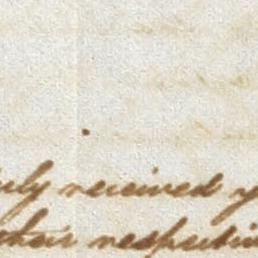 uly received y
their respective